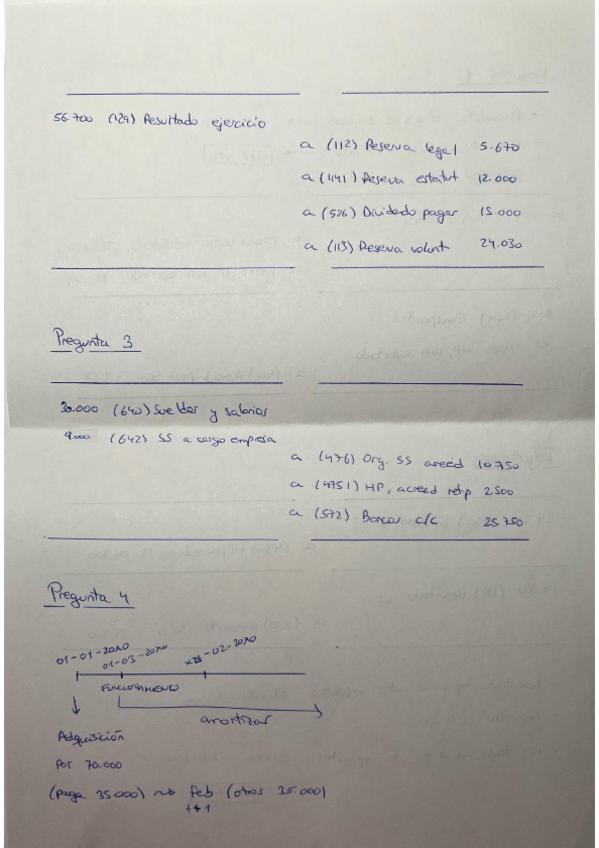 56.700 (129) Resultado ejercicio
a (112) Reserva legal 5.670
a (1141) Reserva estatut 12.000
a (526) Dividendo pagar 15.000
a (113) Reserva volunt 24.030
Pregunta 3
30.000 (640) Sueldos y salarios
9.000 (642) SS a cargo empresa
a (476) Org. SS acreed 10750
a (4751) HP, acreed retp 2500
a (572) Bancos c/c 25750
Pregunta 4
01-01-20X0
01-03-20X0
-02-20X0
FUNCIONAMIENTO
amortizar
Adquisición
por 70.000
(paga 35.000) Feb (otros 35.000)
t+1